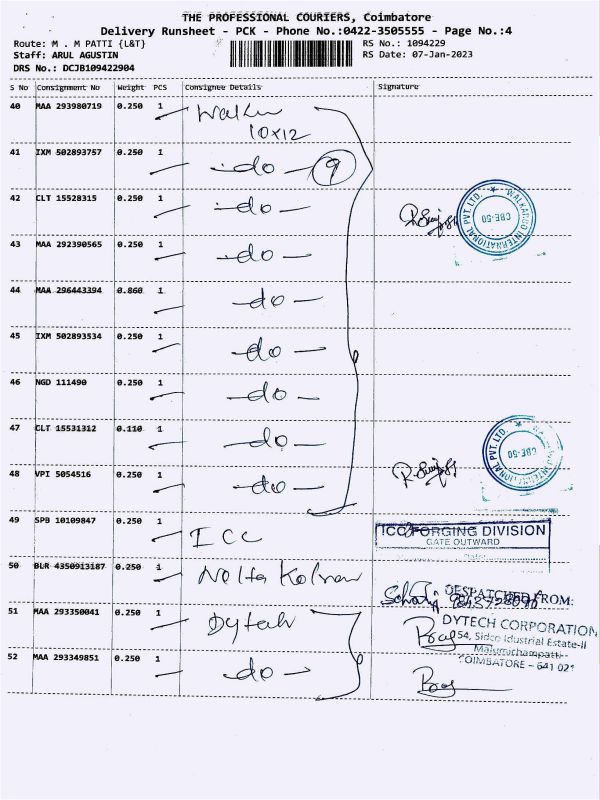 THE PROFESSIONAL COURIERS, Coimbatore
Delivery Runsheet - PCK - Phone No.:0422-3505555 - Page No.:4
Route: M . M PATTI {L&T}
RS No.: 1094229
Staff: ARUL AGUSTIN
RS Date: 07-Jan-2023
DRS No.: DCJB109422904
S No Consignment No Weight PCS Consignee Details Signature
40 MAA 293980719 0.250 1
10x12
41 IXM 502893757 0.250 1 -do- 9
42 CLT 15528315 0.250 1 -do-
WALKAROO INTERNATIONAL PVT. LTD. ★ CBE-50
43 MAA 292390565 0.250 1 -do-
44 MAA 296443394 0.860 1 -do-
45 IXM 502893534 0.250 1 -do-
46 NGD 111490 0.250 1 -do-
47 CLT 15531312 0.110 1 -do-
PVT. LTD. ★ CBE-50
48 VPI 5054516 0.250 1 -do-
49 SPB 10109847 0.250 1 ICC
ICC FORGING DIVISION
GATE OUTWARD
50 BLR 4350913187 0.250 1
DESPATCHED FROM:
51 MAA 293350041 0.250 1 Dytech
DYTECH CORPORATION
54, Sidco Idustrial Estate-II
Malumichampatti
COIMBATORE - 641 021
52 MAA 293349851 0.250 1 -do-